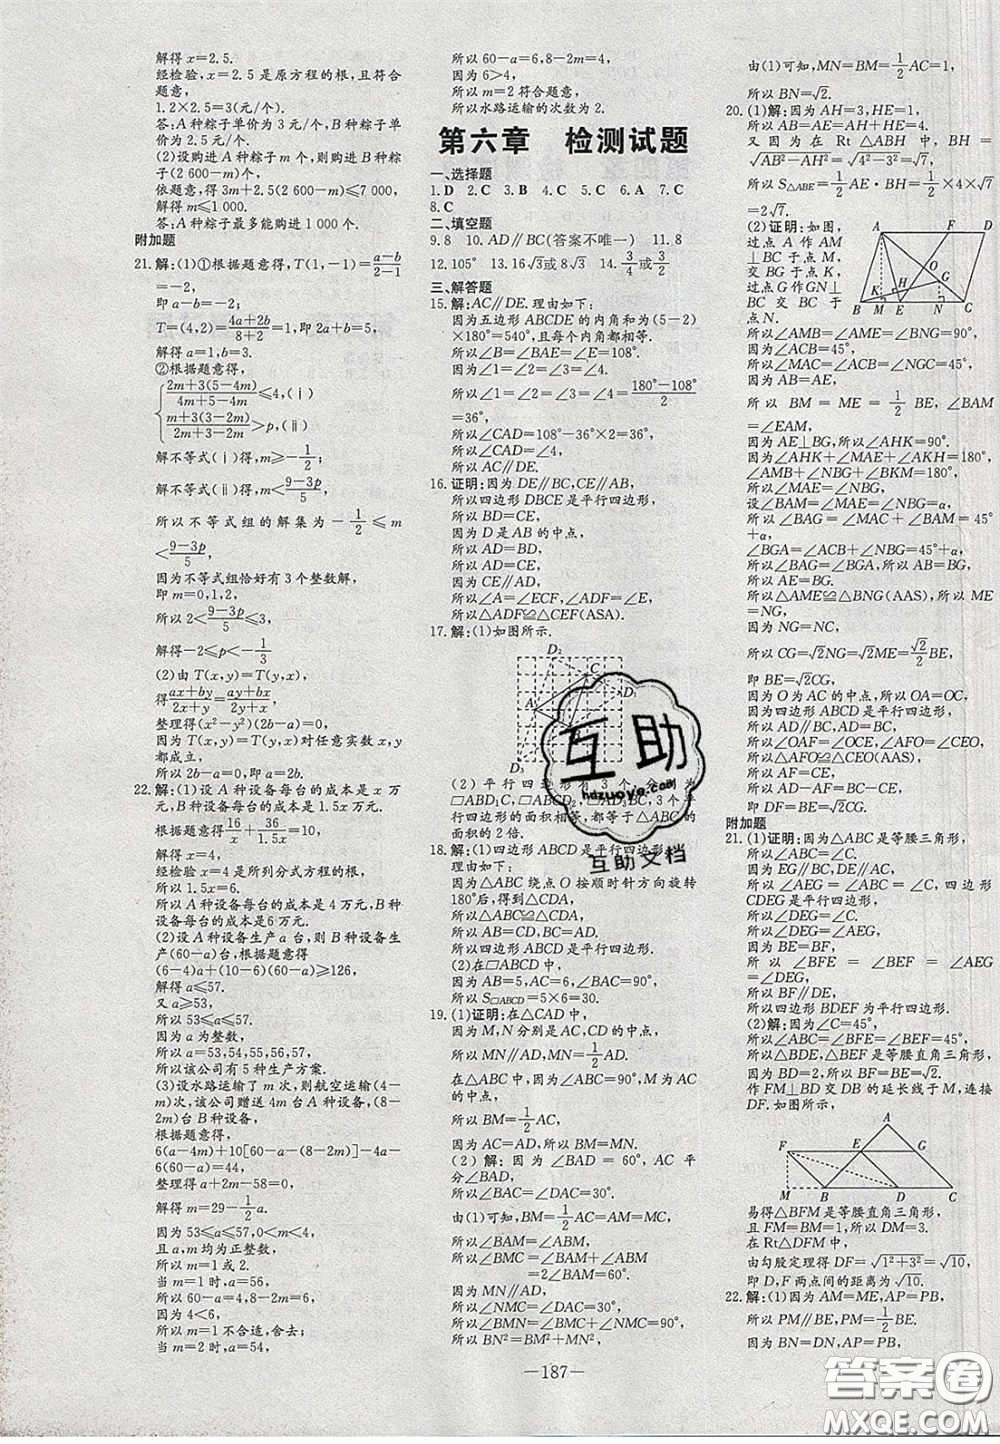 解得 x=2.5.
经检验,x=2.5 是原方程的根,且符合
题意,
1.2×2.5=3(元/个).
答:A 种粽子单价为 3 元/个,B 种粽子单
价为 2.5 元/个.
(2)设购进 A 种粽子 m 个,则购进 B 种
粽子(2 600-m)个,
依题意,得3m+2.5(2 600-m)≤7 000,
解得 m≤1 000.
答:A 种粽子最多能购进 1 000 个.
附加题
21.解:(1)①根据题意得,T(1,-1)=(a-b)/(2-1)
=-2,
即 a-b=-2;
T=(4,2)=(4a+2b)/(8+2)=1,
解得 a=1,b=3.
②根据题意得,
{(2m+3(5-4m))/(4m+5-4m)≤4,(ⅰ)
(m+3(3-2m))/(2m+3-2m)>p,(ⅱ)
解不等式(ⅰ)得,m≥-1/2;
解不等式(ⅱ)得,m<(9-3p)/5,
所以不等式组的解集为 -1/2≤m
<(9-3p)/5,
因为不等式组恰好有 3 个整数解,
即 m=0,1,2,
所以 2<(9-3p)/5≤3,
解得-2≤p<-1/3
(2)由 T(x,y)=T(y,x),
得(ax+by)/(2x+y)=(ay+bx)/(2y+x),
整理得(x²-y²)(2b-a)=0,
因为 T(x,y)=T(y,x)对任意实数 x,y
都成立,
所以 2b-a=0,所以 a=2b.
22.解:(1)设 A 种设备每台的成本是 x 万
元,B 种设备每台的成本是 1.5x 万元.
根据题意得16/x+36/1.5x=10,
解得 x=4,
经检验 x=4 是所列分式方程的根,
所以 1.5x=6.
所以 A 种设备每台的成本是 4 万元,B 种
设备每台的成本是 6 万元.
(2)设 A 种设备生产 a 台,则 B 种设备生
产(60-a)台,根据题意得
(6-4)a+(10-6)(60-a)≥126,
解得 a≤57.
又 a≥53,
所以 53≤a≤57.
因为 a 为整数,
所以 a=53,54,55,56,57,
所以该公司有 5 种生产方案.
(3)设水路运输了 m 次,则航空运输(4-
m)次,该公司赠送 4m 台 A 种设备,(8-
2m)台 B 种设备,
根据题意得,
6(a-4m)+10[60-a-(8-2m)]-4a-
6(60-a)=44,
整理得 a+2m-58=0,
解得 m=29-1/2a.
因为 53≤a≤57,0<m<4,
且 a,m 均为正整数,
所以 m=1或 2.
当 m=1 时,a=56,
所以 60-a=4,8-2m=6,
因为 4<6,
所以 m=1 不合适,舍去;
当 m=2 时,a=54,
所以 60-a=6,8-2m=4,
因为 6>4,
所以 m=2 符合题意,
所以水路运输的次数为 2.
第六章 检测试题
一、选择题
1.D 2.C 3.B 4.C 5.C 6.A 7.C
8.C
二、填空题
9.8 10.AD∥BC(答案不唯一) 11.8
12.105° 13.16√3或 8√3 14.3/4或3/2
三、解答题
15.解:AC∥DE.理由如下:
因为五边形 ABCDE 的内角和为(5-2)
×180°=540°,且每个内角都相等,
所以∠B=∠BAE=∠E=108°.
所以∠1=∠2=∠3=∠4=(180°-108°)/2
=36°,
所以∠CAD=108°-36°×2=36°,
所以∠CAD=∠4.
所以 AC∥DE.
16.证明:因为 DE∥BC,CE∥AB,
所以四边形 DBCE 是平行四边形,
所以 BD=CE,
因为 D 是 AB 的中点,
所以 AD=BD,
所以 AD=CE,
因为 CE∥AD,
所以∠A=∠ECF,∠ADF=∠E,
所以△ADF≌△CEF(ASA).
17.解:(1)如图所示.
D₂
C
D₁
A
D₃
(2)平行四边形有 3 个,分别为
▱ABD₁C, ▱ABCD₂, ▱AD₃BC,3 个平
行四边形的面积相等,都等于△ABC 的
面积的 2 倍.
18.解:(1)四边形 ABCD 是平行四边形.
理由如下:
因为△ABC 绕点 O 按顺时针方向旋转
180°后,得到△CDA,
所以△ABC≌△CDA,
所以 AB=CD,BC=AD,
所以四边形 ABCD 是平行四边形.
(2)在▱ABCD 中,
因为 AB=5,AC=6,∠CAB=90°,
所以 S▱ABCD=5×6=30.
19.(1)证明:在△CAD 中,
因为 M,N 分别是 AC,CD 的中点,
所以 MN∥AD,MN=1/2AD.
在△ABC 中,因为∠ABC=90°,M 是 AC
的中点,
所以 BM=1/2AC,
因为 AC=AD,所以 BM=MN.
(2)解:因为∠BAD=60°,AC 平
分∠BAD,
所以∠BAC=∠DAC=30°.
由(1)可知,BM=1/2AC=AM=MC,
所以∠BMC=∠BAM+∠ABM
=2∠BAM=60°.
因为 MN∥AD,
所以∠NMC=∠DAC=30°,
所以∠BMN=∠BMC+∠NMC=90°,
所以 BN²=BM²+MN²,
由(1)可知,MN=BM=1/2AC=1,
所以 BN=√2.
20.(1)解:因为 AH=3,HE=1,
所以 AB=AE=AH+HE=4,
又因为在 Rt△ABH 中,BH=
√(AB²-AH²)=√(4²-3²)=√7,
所以 S△ABE=1/2AE·BH=1/2×4×√7
=2√7.
(2)证明:如图,
过点 A 作 AM
⊥BC 于点 M,
交 BG 于点 K,
过点 G 作 GN⊥
BC 交 BC 于
点 N.
A F D
O
H G
K
B M E N C
所以∠AMB=∠AME=∠BNG=90°,
因为∠ACB=45°,
所以∠MAC=∠NGC=45°,
因为 AB=AE,
所以 BM=ME=1/2BE,∠BAM
=∠EAM,
因为 AE⊥BG,所以∠AHK=90°.
因为∠AHK+∠MAE+∠AKH=180°,
∠AMB+∠NBG+∠BKM=180°,
所以∠MAE=∠NBG,
设∠BAM=∠MAE=∠NBG=α,
所以∠BAG=∠MAC+∠BAM=45°
+α,
∠BGA=∠ACB+∠NBG=45°+α,
所以∠BAG=∠BGA,所以 AB=BG,
所以 AE=BG.
所以△AME≌△BNG(AAS),所以 ME
=NG,
因为 NG=NC,
所以 CG=√2NG=√2ME=√2/2BE,
即 BE=√2CG,
因为 O 为 AC 的中点,所以 OA=OC,
因为四边形 ABCD 是平行四边形,
所以 AD∥BC,AD=BC.
所以∠OAF=∠OCE,∠AFO=∠CEO,
所以△AFO≌△CEO(AAS),
所以 AF=CE,
所以 AD-AF=BC-CE,
即 DF=BE=√2CG.
附加题
21.(1)证明:因为△ABC 是等腰三角形,
所以∠ABC=∠C.
因为 EG∥BC,DE∥AC,
所以∠AEG=∠ABC=∠C,四边形
CDEG 是平行四边形,
所以∠DEG=∠C,
所以∠DEG=∠AEG,
因为 BE=BF,
所以∠BFE=∠BEF=∠AEG
=∠DEG,
所以 BF∥DE,
所以四边形 BDEF 为平行四边形.
(2)解:因为∠C=45°,
所以∠ABC=∠BFE=∠BEF=45°,
所以△BDE,△BEF 是等腰直角三角形,
因为 BD=2,所以 BF=BE=√2.
作 FM⊥BD 交 DB 的延长线于 M,连接
DF.如图所示,
A
F E G
M B D C
易得△BFM 是等腰直角三角形,
且 FM=BM=1,所以 DM=3.
在 Rt△DFM 中,
由勾股定理得 DF=√(1²+3²)=√10,
即 D,F 两点间的距离为√10.
22.解:(1)因为 AM=ME,AP=PB,
所以 PM∥BE,PM=1/2BE.
因为 BN=DN,AP=PB,
—187—
互助
hdzuoye.com
互助文档
答案圈
MXQE.COM